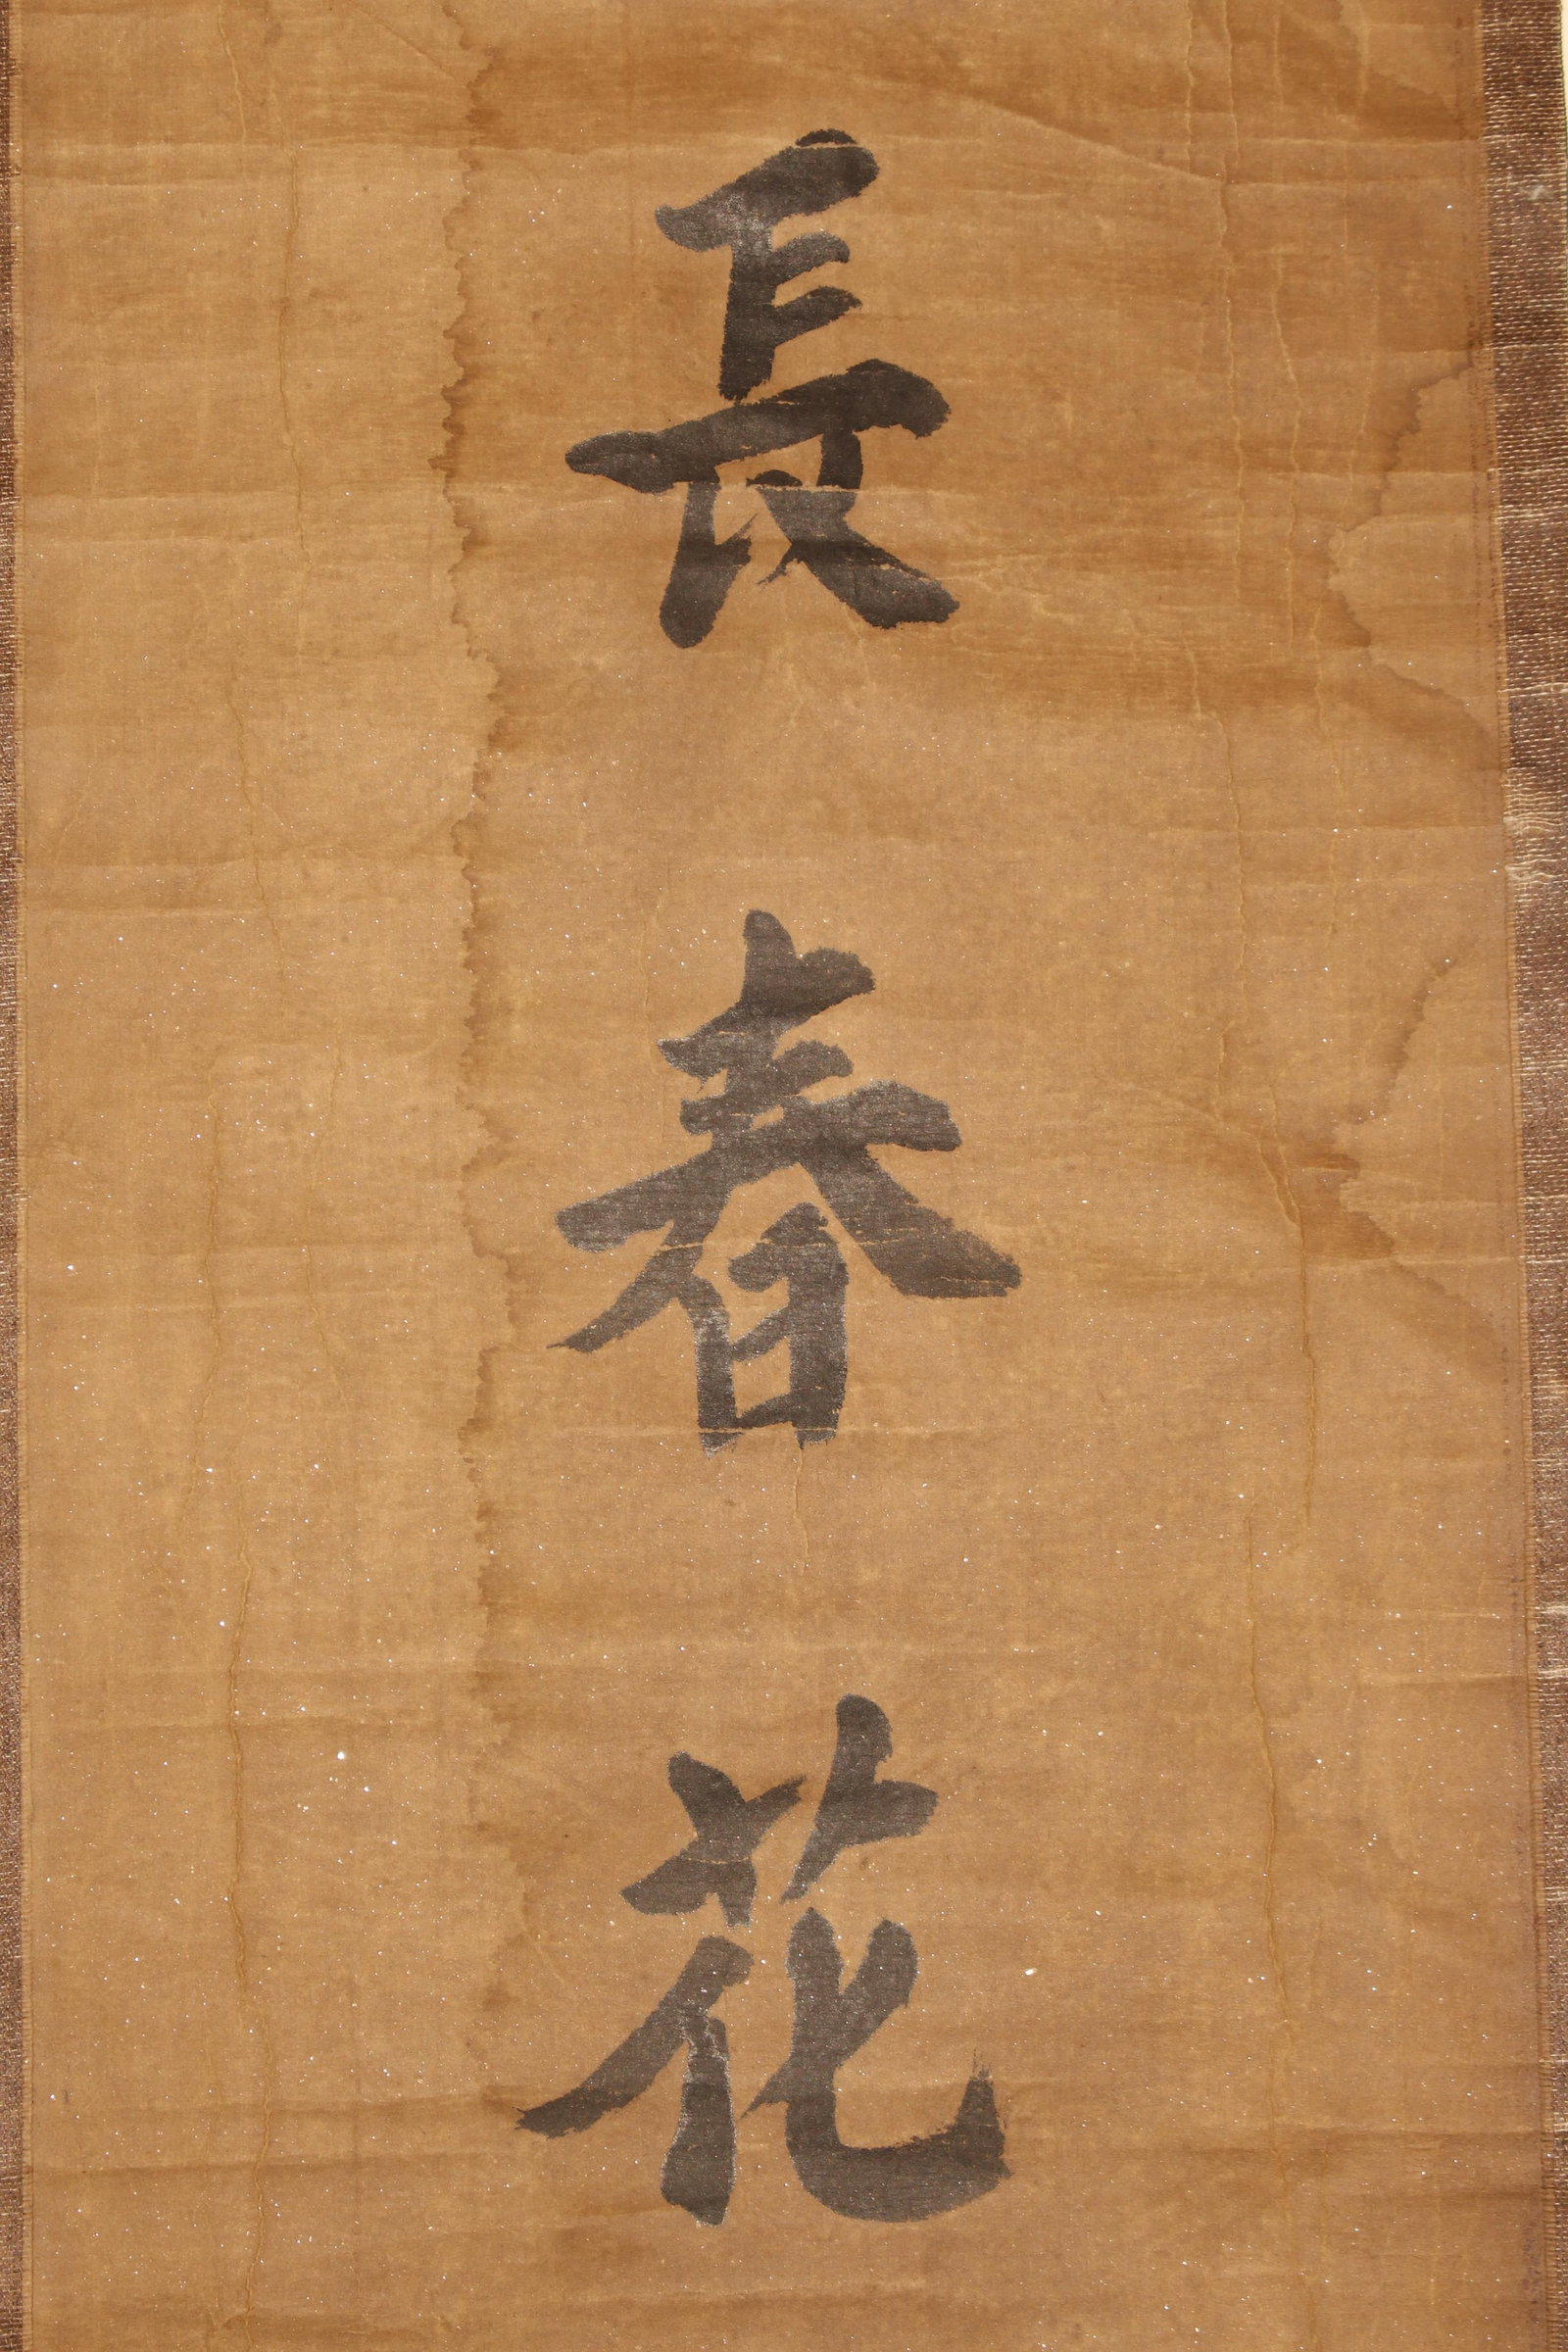 長春花